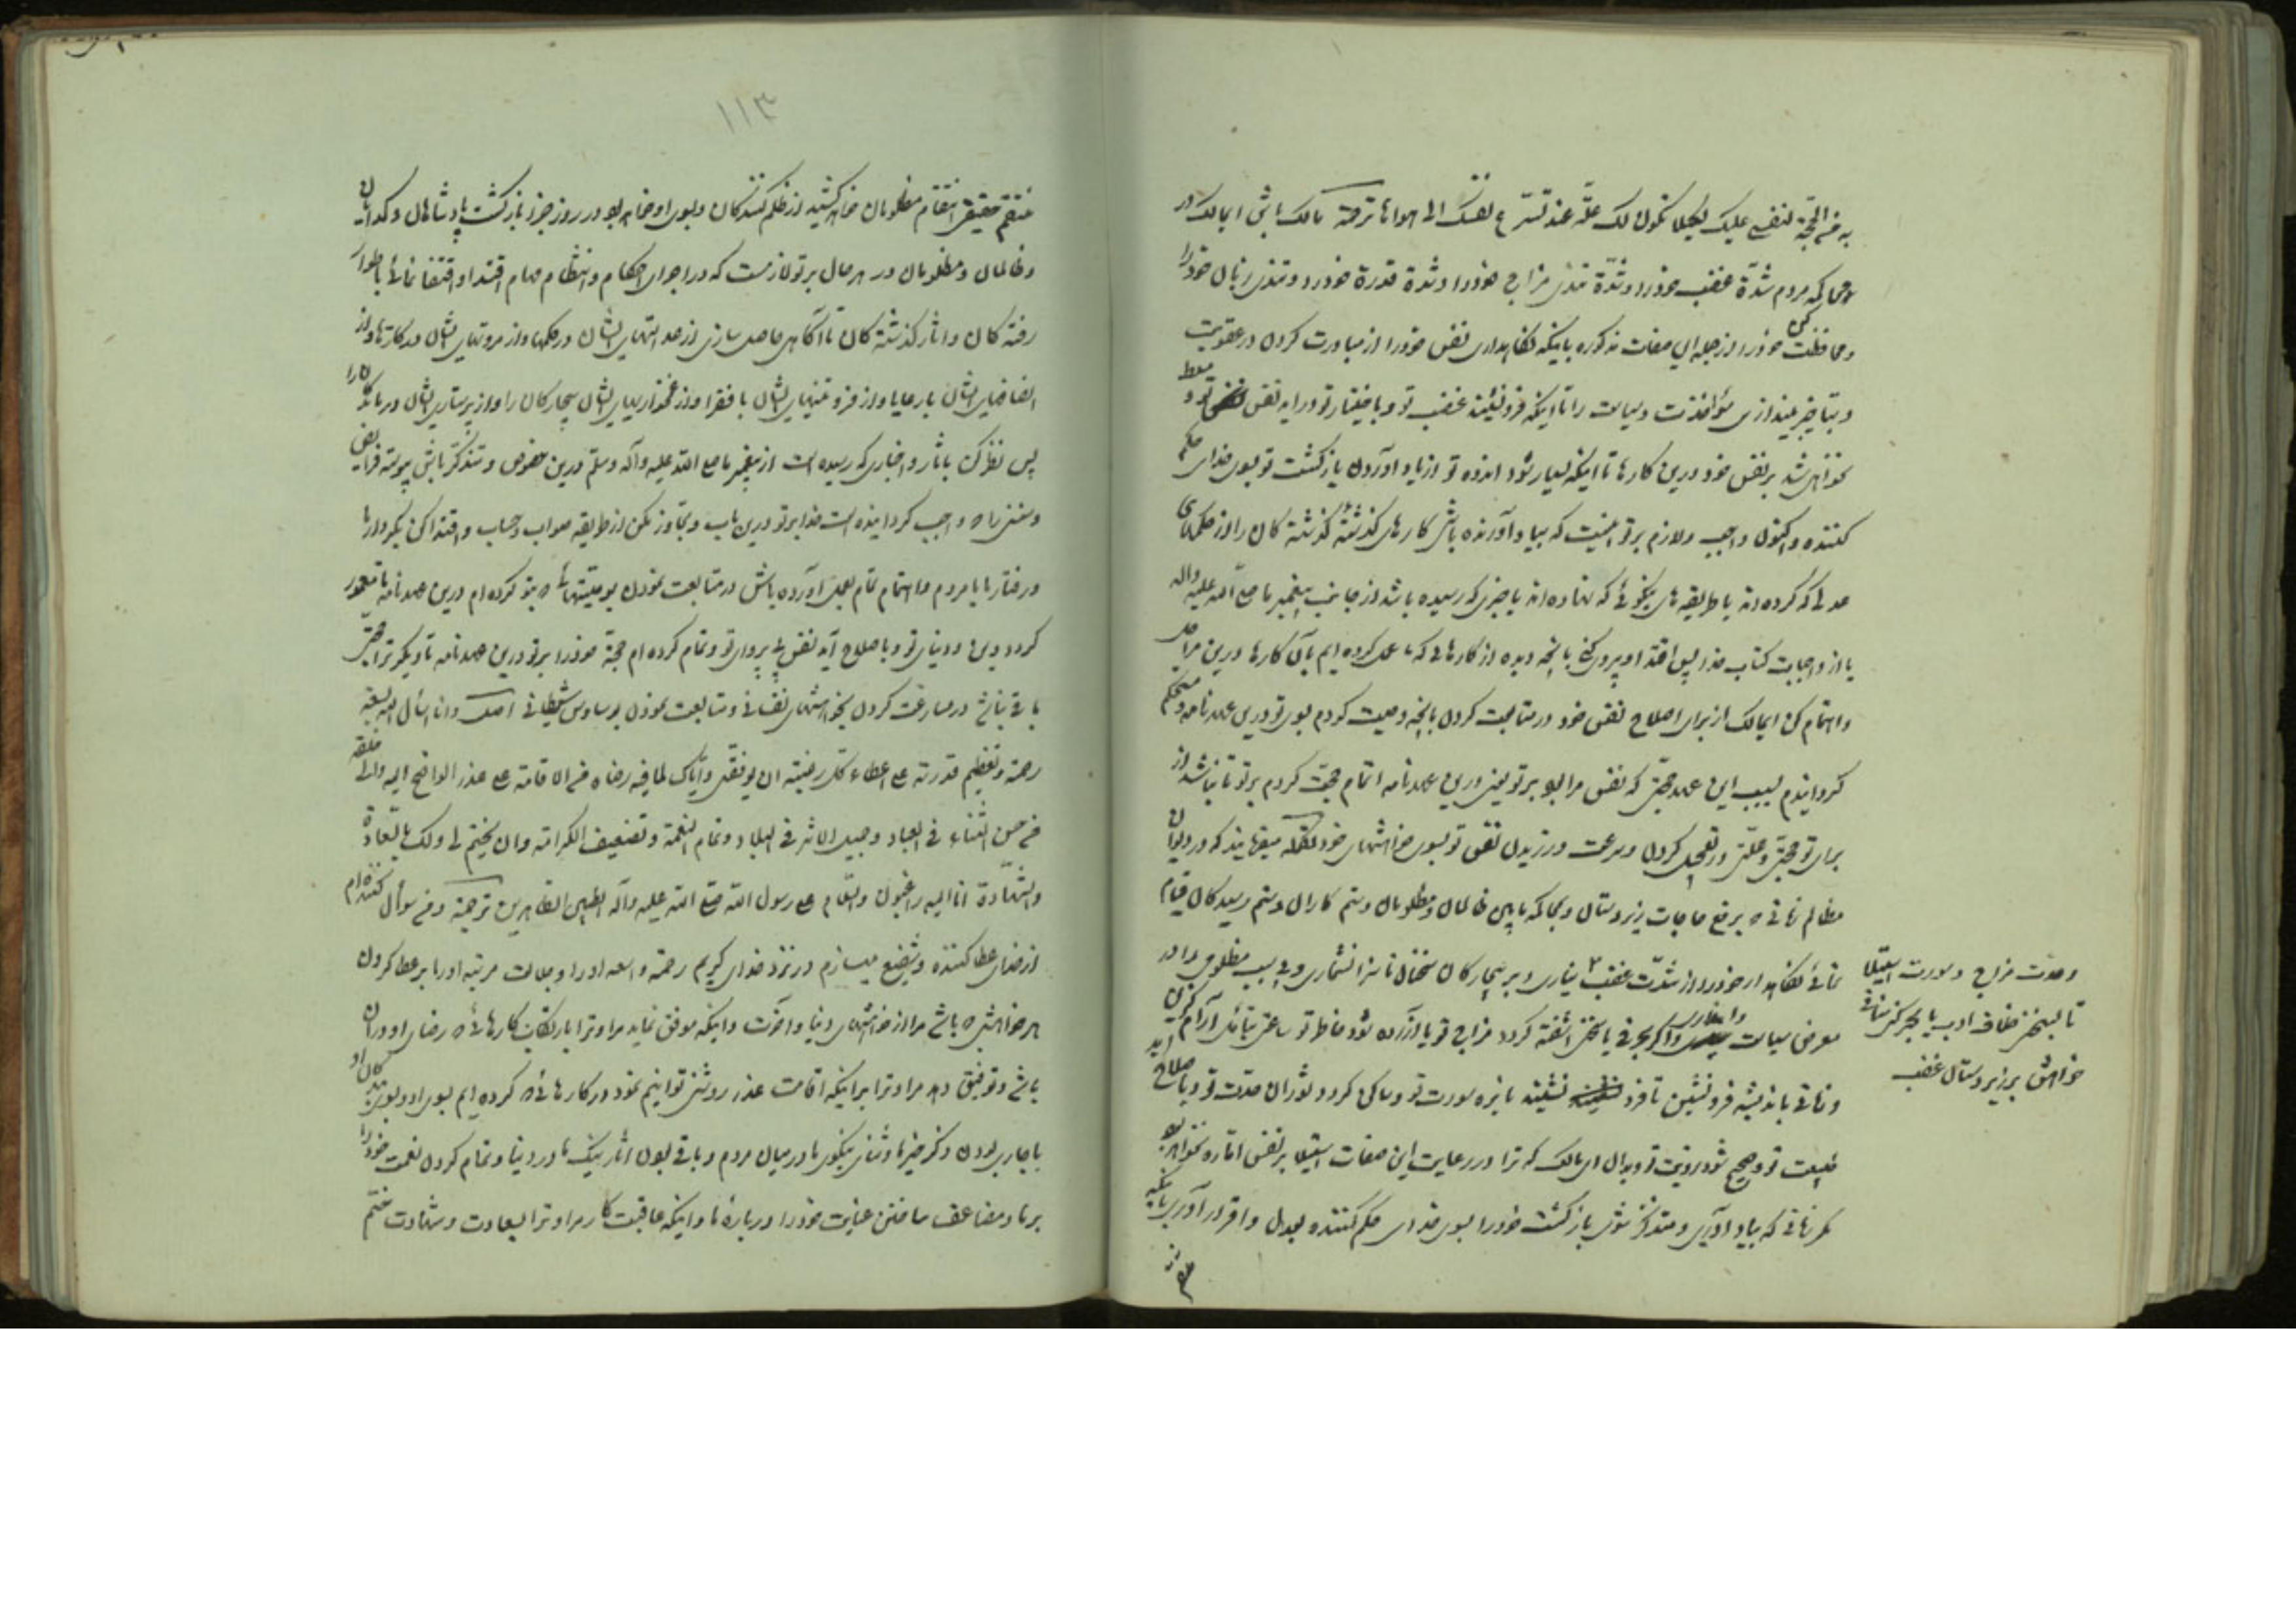 به من الحجة لنفسی علیک لکیلا تکون لک علة عند تسرع نفسک الی هواها ترجمه مالک باش ایمالک در
محاکمه مردم شدة غضب خود را و شدة تندی مزاج خود را و شدة قدرة خود را و تندی زبان خود را
و محافظت کن خود را از جمله این صفات مذکوره باینکه نگاهداری نفس خود را از مبادرت کردن در عقوبت
و بتاخیر بیندازی مؤاخذت و سیاست را تا اینکه فرو نشیند غضب تو و باختیار تو در آید نفس تو و مسلط
نخواهی شد بر نفس خود درین کارها تا اینکه بسیار شود اندوه تو از یاد آوردن بازگشت تو بسوی خدای حکم
کننده و اکنون واجب و لازم بر تو اینست که بیاد آورنده باشی کارهای گذشته گذشته کان را از حکمهای
عدلی که کرده اند یا طریقه های نیکوئی که نهاده اند یا خبری که رسیده باشد از جانب پیغمبر ما صلی الله علیه واله
یا از واجبات کتاب خدا پس اقتدا و پیروی کنی بآنچه دیده از کارهائی که ما عمل کرده ایم بآن کارها درین مراحل
و اهتمام کن ایمالک از برای اصلاح نفس خود در متابعت کردن بآنچه وصیت کردم بسوی تو درین عهدنامه و مستحکم
گردانیدم بسبب این عهد حجتی که نفس مرا بود بر تو یعنی درین عهدنامه اتمام حجت کردم بر تو تا نباشد از
برای تو حجتی و علتی در تعجیل کردن و سرعت ورزیدن نفس تو بسوی خواهشهای خود میفرمایند که در دیوان
مظالم زمانی که برفع حاجات زیردستان و محاکمه مابین ظالمان و مظلومان و ستم کاران و ستم رسیدگان قیام
نمائی نگاهدار خود را از شدت غضب ۲ نیاری و بر بیچارگان سخنان ناسزا نشماری و بی سبب مظلومی را در
معرض سیاست و انتظاری و اگر بحرفی یا سخنی آشفته گردد مزاج تو یا آزرده شود خاطر تو ساعتی بتأمل آرام گیری
و زمانی باندیشه فرو نشین تا فرو نشیند نایره سورت تو و ساکن گردد ثوران حدت تو و باصلاح آید
طبیعت تو و صحیح شود رویت تو و بدان ایمالک که ترا در رعایت این صفات استیلا بر نفس اماره نخواهد بود
مگر زمانی که بیاد آوری و متذکر شوی بازگشت خود را بسوی خدای حکم کننده بعدل و اقرار آوری باینکه
وحدت مزاج و سورت استیلا
تا بسخن خلاف ادب یا بحرکتی منافی
خواهش بر زیردستان غضب
۱۱۳
منتقم حقیقی انتقام مظلومان خواهد کشید از ظلم کنندگان و بسوی او خواهد بود در روز جزا بازگشت پادشاهان و گدایان
و ظالمان و مظلومان در هر حال بر تو لازمست که در اجرای احکام و انتظام مهام اقتدا و اقتفا نمائی باطوار
رفته کان و اثار گذشته کان تا آگاهی حاصل سازی از عدالتهای ایشان در حکمها و از مروتهای ایشان در کارها و از
انصافهای ایشان با رعایا و از فروتنیهای ایشان با فقرا و از غمخواریهای ایشان بیچارگان را و از پرستاری ایشان درماندگان را
پس نظر کن باثار و اخباری که رسیده است از پیغمبر ما صلی الله علیه وآله وسلم درین خصوص و متذکر باش پیوسته فرایض
و سننی را که واجب گردانیده است خدا بر تو درین باب و تجاوز مکن از طریقه صواب و حساب و اقتدا کن بکردارها
و رفتار ما با مردم و اهتمام تمام بعمل آورده باش در متابعت نمودن بوصیتهائی که بتو کرده ام درین عهدنامه تا معمور
گردد دین و دنیای تو و باصلاح آید نفس بی پروای تو و تمام کرده ام حجة خود را بر تو درین عهدنامه تا دیگر ترا حجتی
باقی نباشد در مسارعت کردن بخواهشهای نفسانی و متابعت نمودن بوساوس شیطانی اصل و انا اسأل الله بسعة
رحمته و عظیم قدرته علی اعطاء کل رغبة ان یوفقنی وایاک لما فیه رضاه من الاقامة علی عذر الواضح الیه والی خلقه
من حسن الثناء فی العباد و جمیل الاثر فی البلاد و تمام النعمة و تضعیف الکرامة وان یختم لی ولک بالسعادة
والشهادة انا الیه راغبون والسلام علی رسول الله صلی الله علیه وآله الطیبین الطاهرین ترجمه و من سوأل کننده ام
از خدای عطا کننده و شفیع میسازم در نزد خدای کریم رحمة واسعه او را و جلالت مرتبه او را بر عطا کردن
هر خواهش که باشد مرا از خواهشهای دنیا و آخرت و اینکه موفق نماید مرا و ترا بارتکاب کارهائی که رضای او در آن
باشد و توفیق دهد مرا و ترا بر اینکه اقامت عذر روشنی توانیم نمود در کارهائی که کرده ایم بسوی او و بسوی بندگان او
با جاری بودن ذکر خیر ما و ثنای نیکوی ما در میان مردم و باقی بودن آثار نیک ما در دنیا و تمام کردن نعمت خود را
بر ما و مضاعف ساختن عنایت خود را درباره ما و اینکه عاقبت کار مرا و ترا بسعادت و شهادت ختم